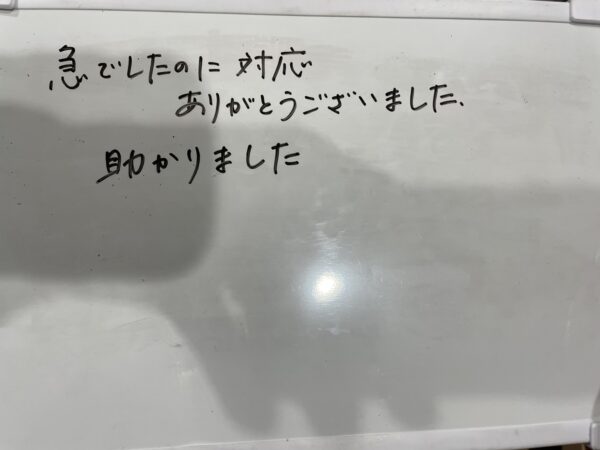 急でしたのに 対応
ありがとうございました.
助かりました